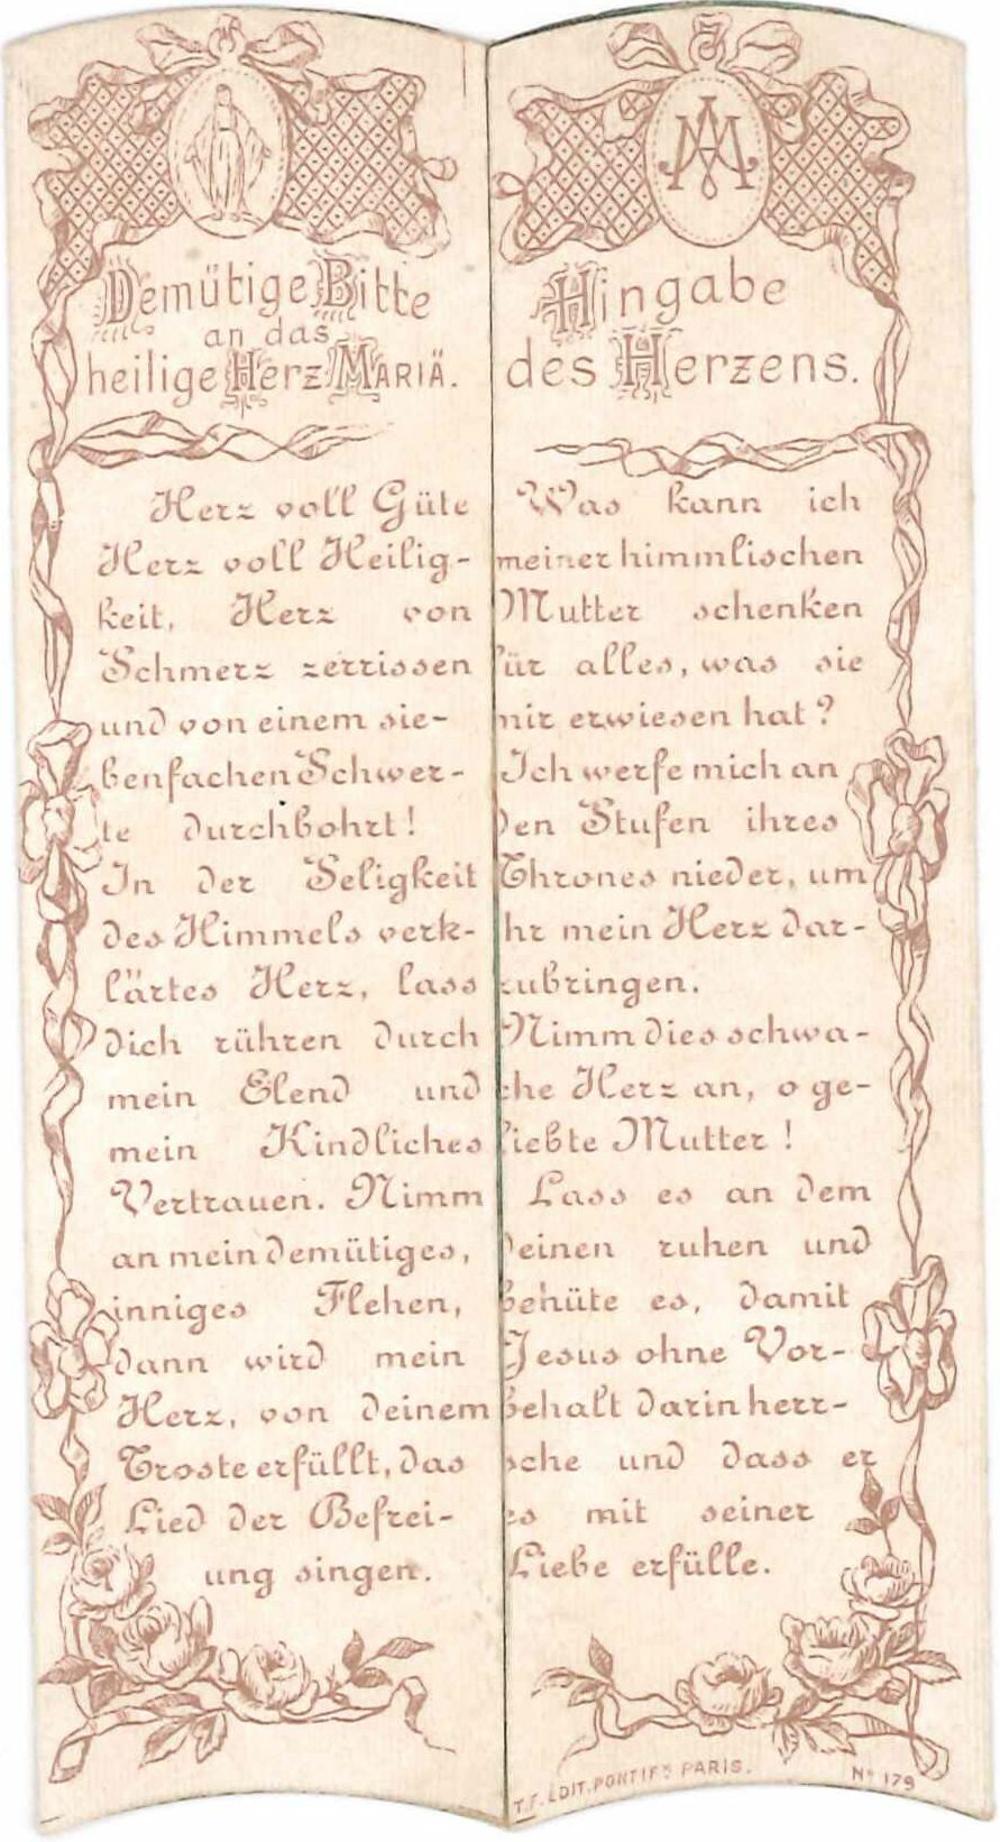 Demütige Bitte
an das
heilige Herz MARIÄ.
Herz voll Güte
Herz voll Heilig-
keit, Herz von
Schmerz zerrissen
und von einem sie-
benfachen Schwer-
te durchbohrt!
In der Seligkeit
des Himmels verk-
lärtes Herz, lass
dich rühren durch
mein Elend und
mein Kindliches
Vertrauen. Nimm
an mein demütiges,
inniges Flehen,
dann wird mein
Herz, von deinem
Troste erfüllt, das
Lied der Befrei-
ung singen.
Hingabe
des Herzens.
Was kann ich
meiner himmlischen
Mutter schenken
für alles, was sie
mir erwiesen hat?
Ich werfe mich an
den Stufen ihres
Thrones nieder, um
ihr mein Herz dar-
zubringen.
Nimm dies schwa-
che Herz an, o ge-
liebte Mutter !
Lass es an dem
deinen ruhen und
behüte es, damit
Jesus ohne Vor-
behalt darin herr-
sche und dass er
es mit seiner
Liebe erfülle.
T.F. EDIT. PONTIFX PARIS.
No 179